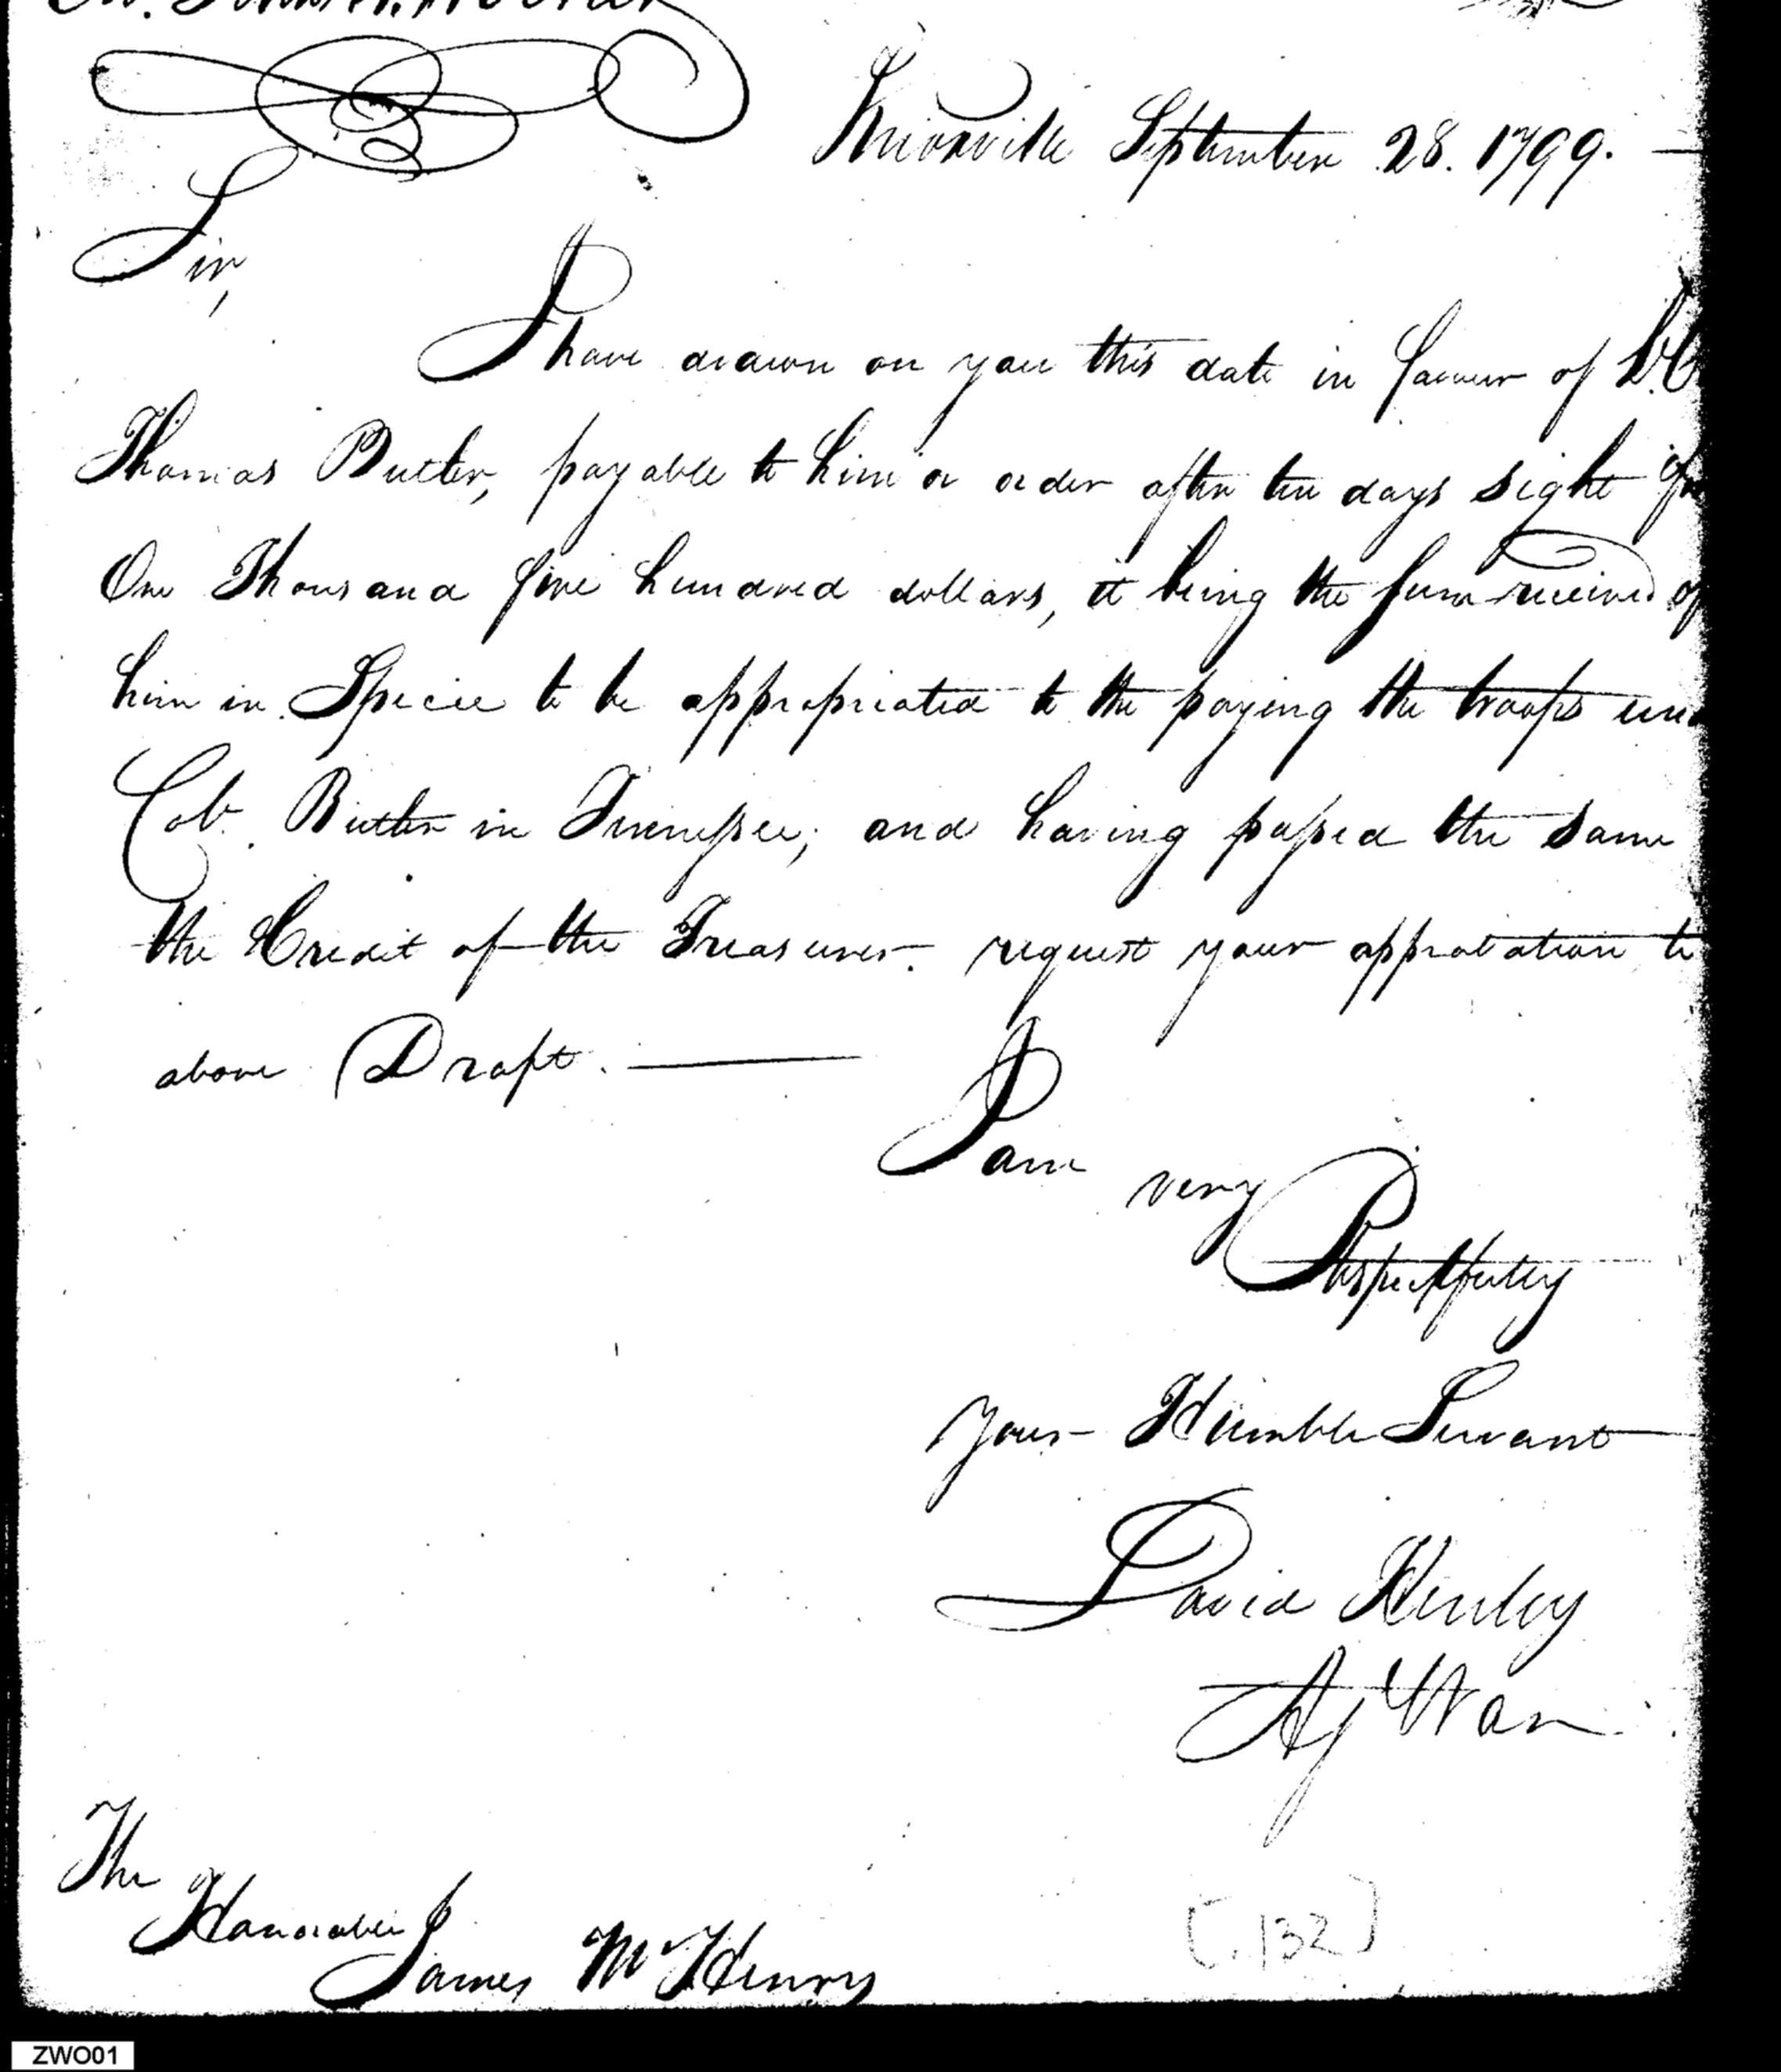 Knoxville September 28. 1799.
Sir,
I have drawn on you this date in favour of Lt. C
Thomas Butler, payable to him or order after ten days sight for
One Thousand five hundred dollars, it being the sum received of
him in Specie to be appropriated to the paying the troops und
Col. Butler in Tennessee; and having passed the same
the Credit of the Treasurer. request your approbation to
above Draft.
I am very
Respectfully
Your Humble Servant
David Henley
Ag War
The
Honorable
James McHenry
[132]
ZWO01